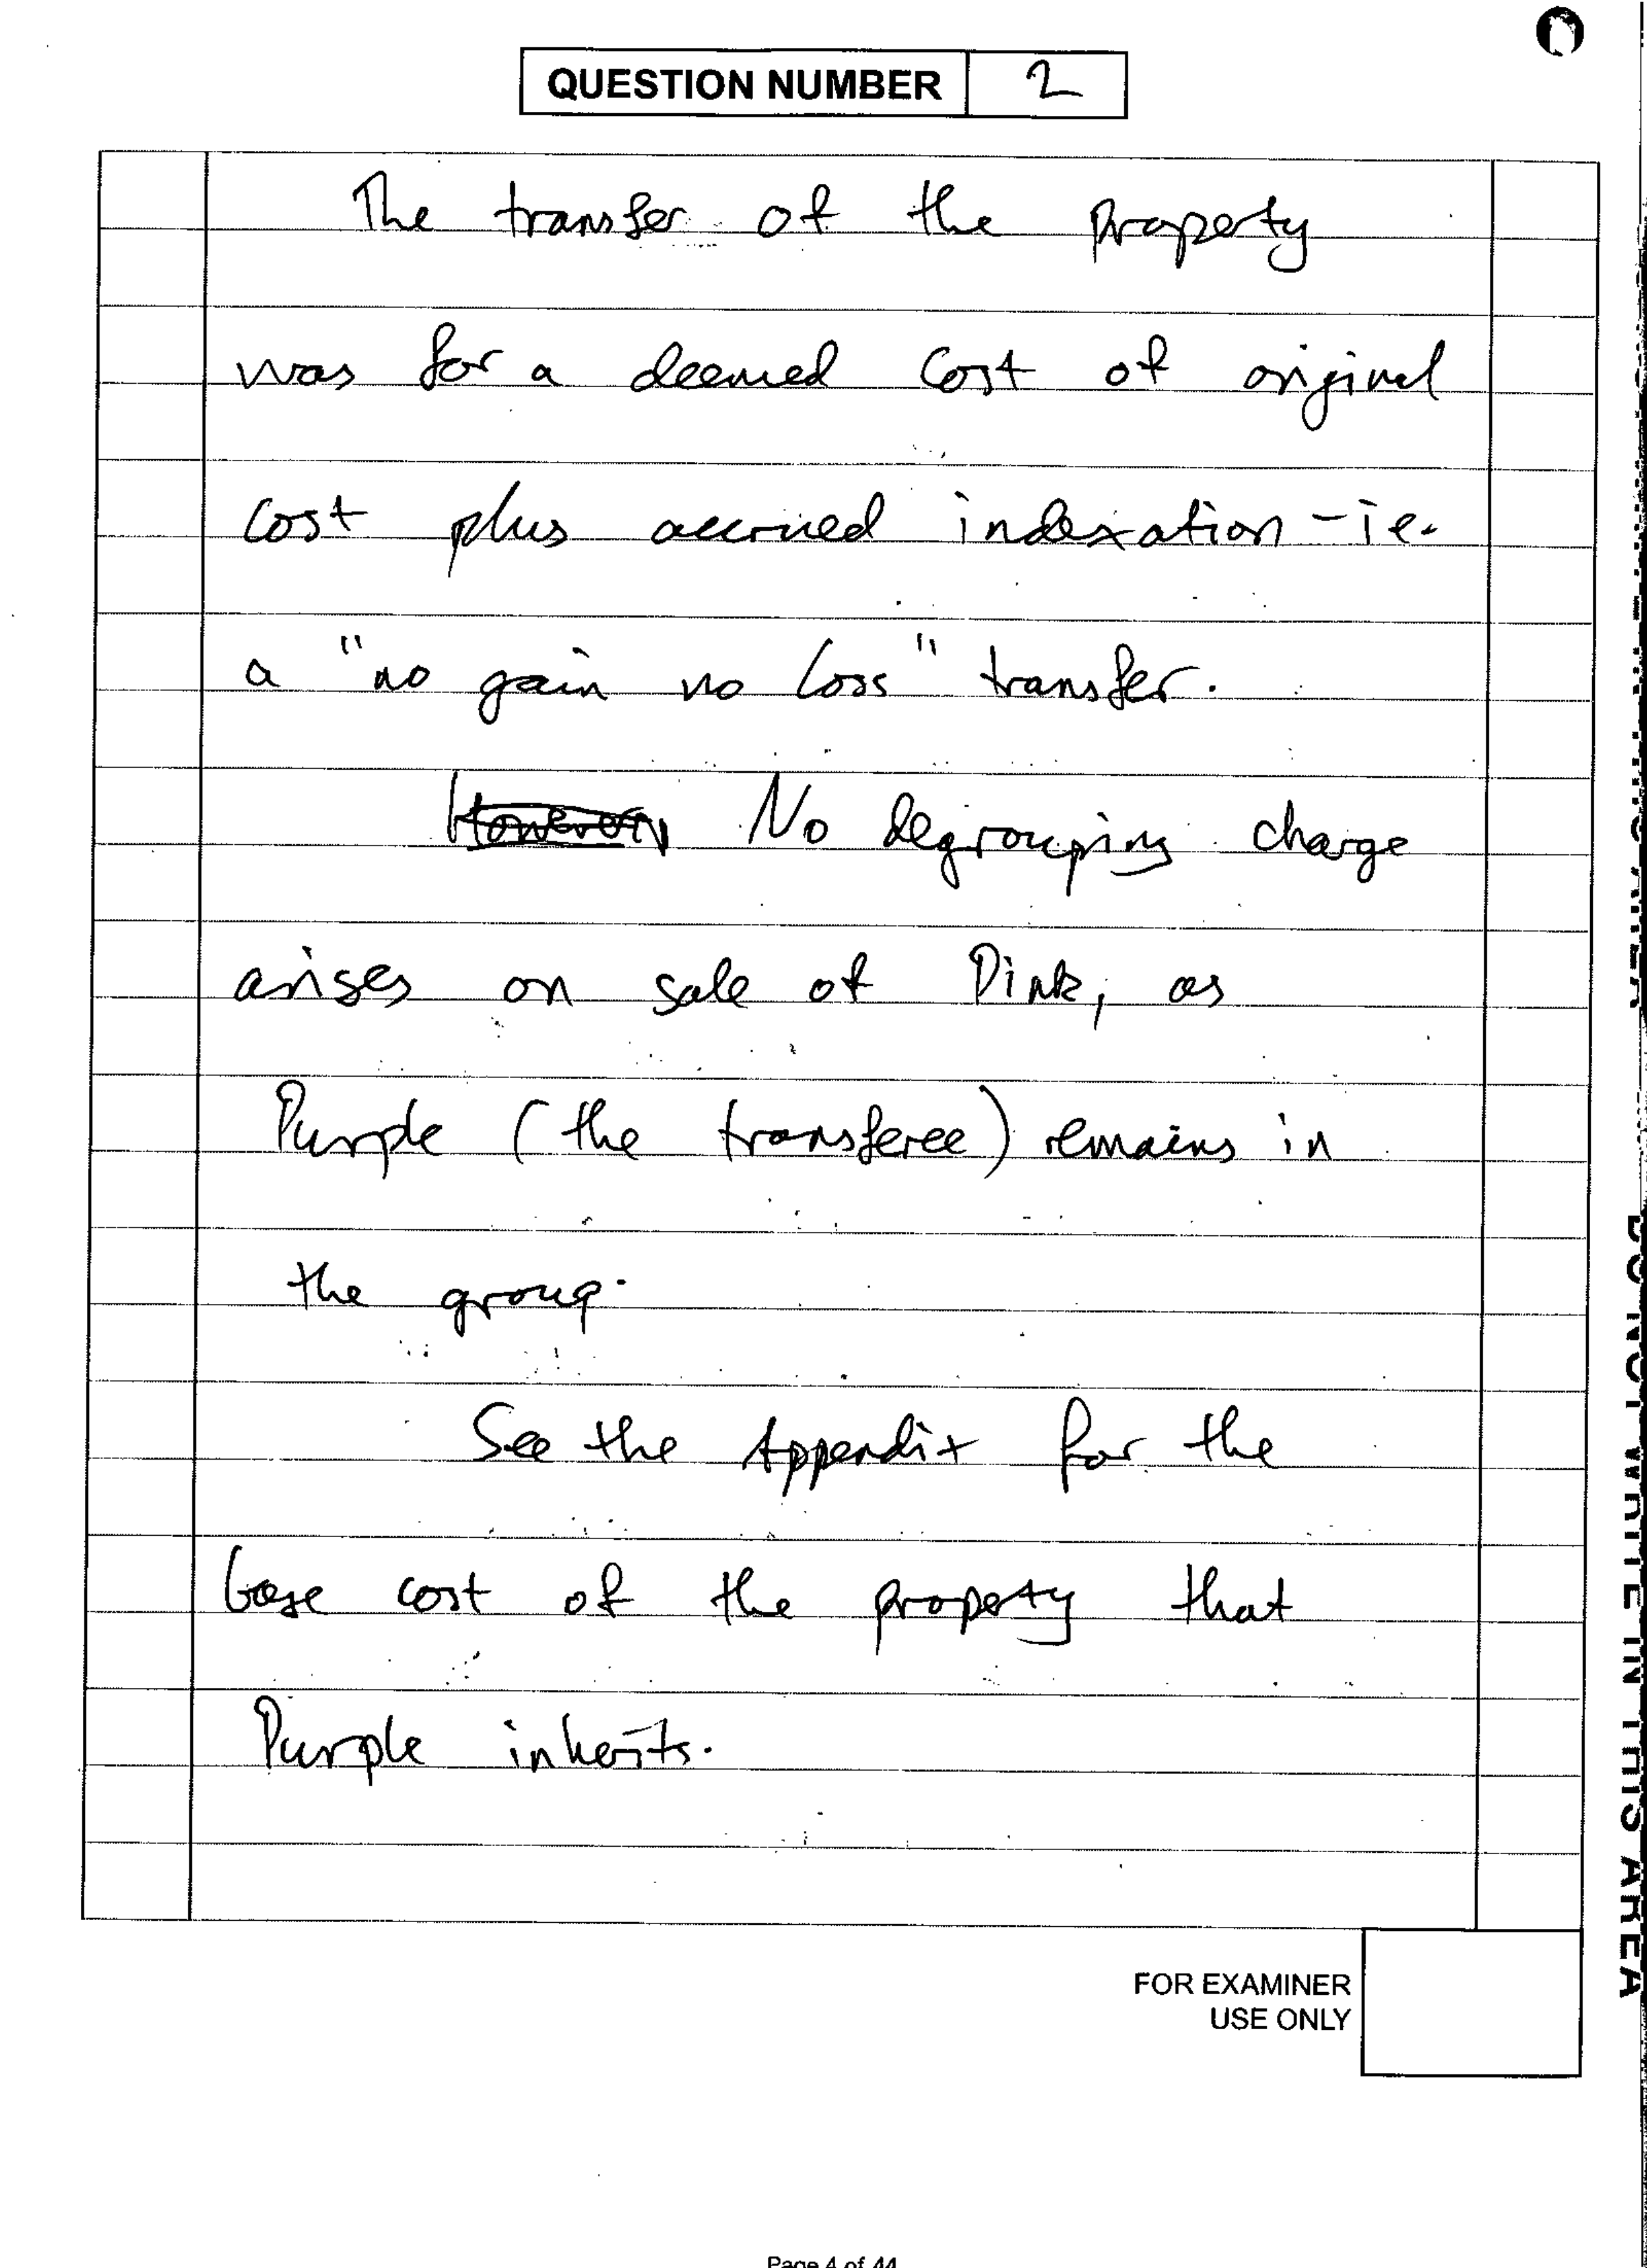 QUESTION NUMBER 2
The transfer of the Property
was for a deemed cost of original
cost plus accrued indexation - ie.
a "no gain no loss" transfer.
However No degrouping charge
arises on sale of Pink, as
Purple (the transferee) remains in
the group.
See the Appendix for the
base cost of the property that
Purple inherits.
FOR EXAMINER
USE ONLY
Page 4 of 44
DO NOT WRITE IN THIS AREA